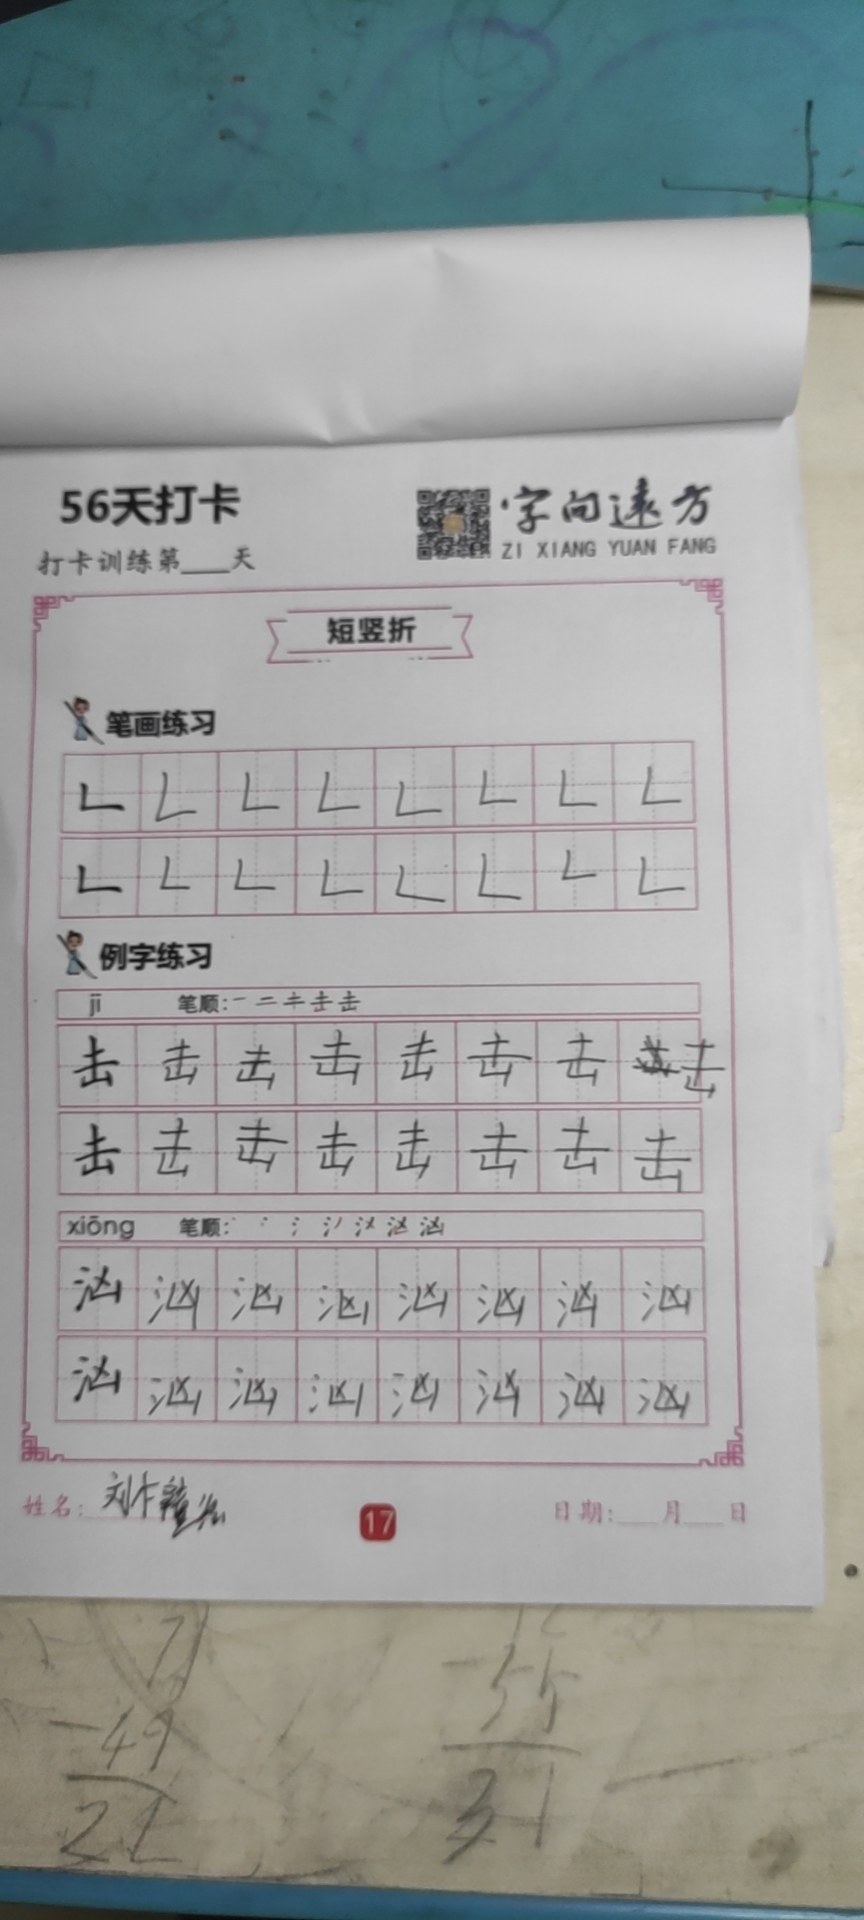 56天打卡
字向远方
打卡训练第___天
ZI XIANG YUAN FANG
短竖折
笔画练习
𠃊 𠃊 𠃊 𠃊 𠃊 𠃊 𠃊 𠃊
𠃊 𠃊 𠃊 𠃊 𠃊 𠃊 𠃊 𠃊
例字练习
jī 笔顺:
击 击 击 击 击 击 击 击
击 击 击 击 击 击 击 击
xiōng 笔顺:
汹 汹 汹 汹 汹 汹 汹 汹
汹 汹 汹 汹 汹 汹 汹 汹
姓名: 刘
17
日期:___月___日
-49
21
-55
31